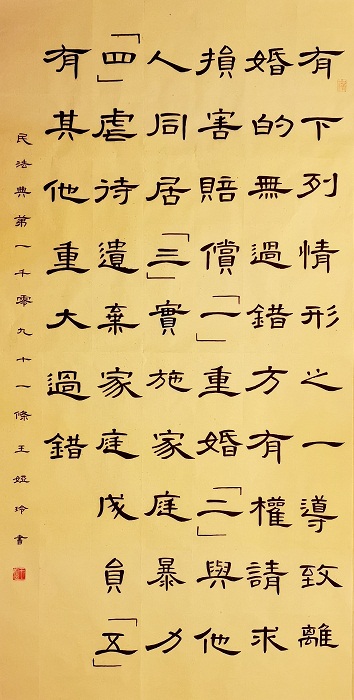 有下列情形之一導致離
婚的無過錯方有權請求
損害賠償「一」重婚「二」與他
人同居「三」實施家庭暴力
「四」虐待遺棄家庭成員「五」
有其他重大過錯
民法典第一千零九十一條王婭玲書